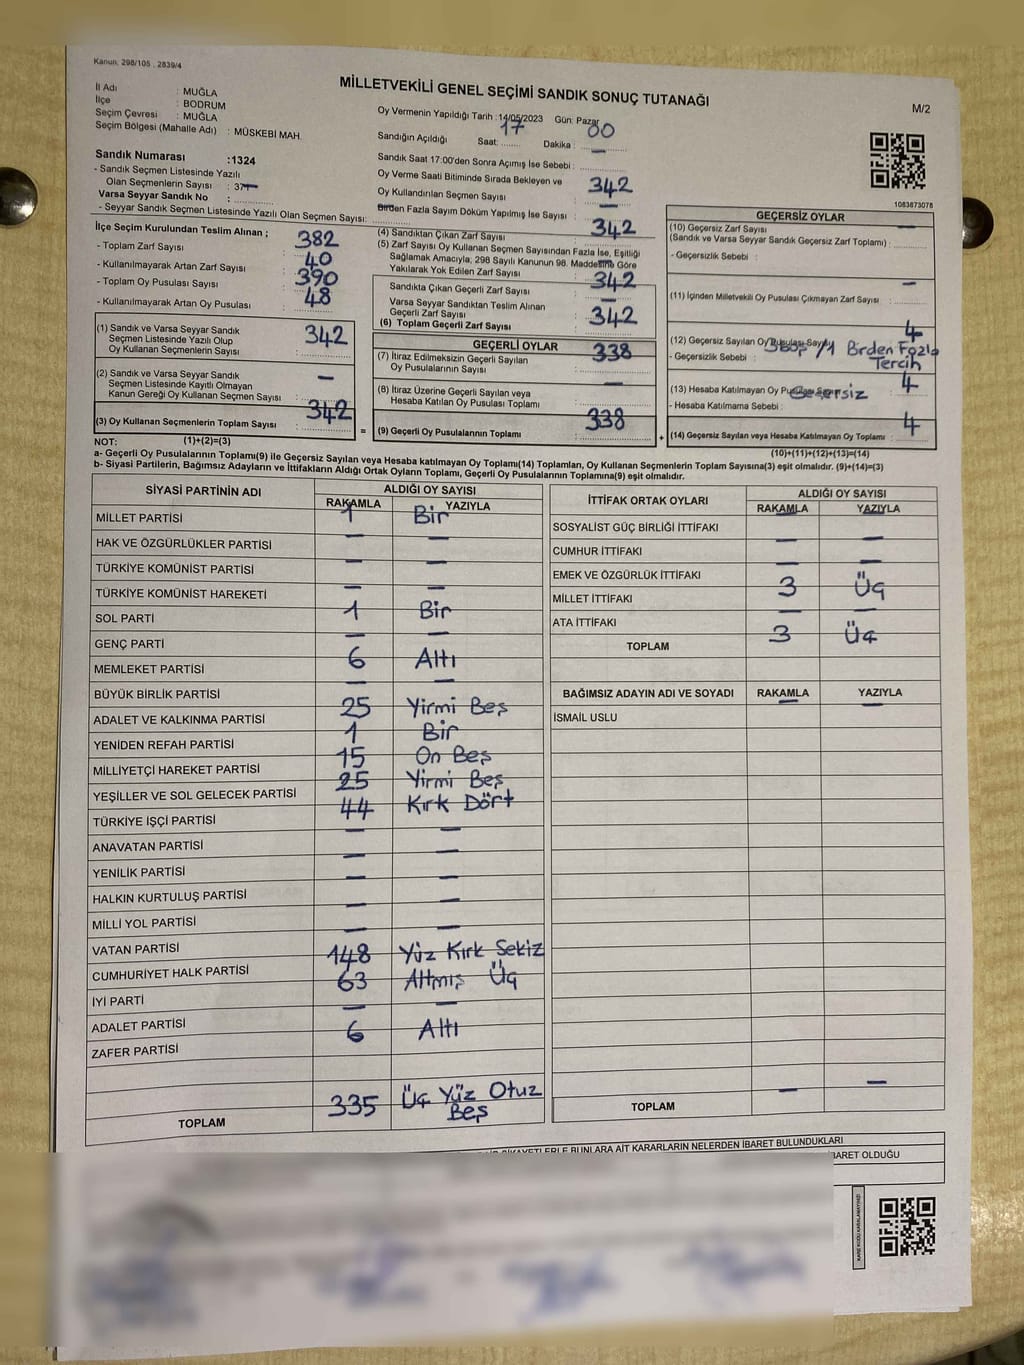 Kanun. 298/105 , 2839/4
MİLLETVEKİLİ GENEL SEÇİMİ SANDIK SONUÇ TUTANAĞI
M/2
İl Adı : MUĞLA
İlçe : BODRUM
Seçim Çevresi : MUĞLA
Seçim Bölgesi (Mahalle Adı) : MÜSKEBİ MAH.
Sandık Numarası :1324
- Sandık Seçmen Listesinde Yazılı
Olan Seçmenlerin Sayısı :
Varsa Seyyar Sandık No :
- Seyyar Sandık Seçmen Listesinde Yazılı Olan Seçmen Sayısı:
Oy Vermenin Yapıldığı Tarih :14/05/2023 Gün: Pazar
Sandığın Açıldığı Saat: 17 Dakika : 00
Sandık Saat 17:00'den Sonra Açımış İse Sebebi : —
Oy Verme Saati Bitiminde Sırada Bekleyen ve
Oy Kullandırılan Seçmen Sayısı : 342
Birden Fazla Sayım Döküm Yapılmış İse Sayısı : —
1083873078
İlçe Seçim Kurulundan Teslim Alınan ;
- Toplam Zarf Sayısı : 382
- Kullanılmayarak Artan Zarf Sayısı : 40
- Toplam Oy Pusulası Sayısı : 390
- Kullanılmayarak Artan Oy Pusulası : 48
(1) Sandık ve Varsa Seyyar Sandık
Seçmen Listesinde Yazılı Olup
Oy Kullanan Seçmenlerin Sayısı : 342
(2) Sandık ve Varsa Seyyar Sandık
Seçmen Listesinde Kayıtlı Olmayan
Kanun Gereği Oy Kullanan Seçmen Sayısı : —
(3) Oy Kullanan Seçmenlerin Toplam Sayısı : 342
(4) Sandıktan Çıkan Zarf Sayısı : 342
(5) Zarf Sayısı Oy Kullanan Seçmen Sayısından Fazla İse, Eşitliği
Sağlamak Amacıyla, 298 Sayılı Kanunun 98. Maddesine Göre
Yakılarak Yok Edilen Zarf Sayısı : —
Sandıkta Çıkan Geçerli Zarf Sayısı : 342
Varsa Seyyar Sandıktan Teslim Alınan
Geçerli Zarf Sayısı : —
(6) Toplam Geçerli Zarf Sayısı : 342
GEÇERLİ OYLAR
(7) İtiraz Edilmeksizin Geçerli Sayılan
Oy Pusulalarının Sayısı : 338
(8) İtiraz Üzerine Geçerli Sayılan veya
Hesaba Katılan Oy Pusulası Toplamı : —
(9) Geçerli Oy Pusulalarının Toplamı : 338
GEÇERSİZ OYLAR
(10) Geçersiz Zarf Sayısı
(Sandık ve Varsa Seyyar Sandık Geçersiz Zarf Toplamı) : —
- Geçersizlik Sebebi :
(11) İçinden Milletvekili Oy Pusulası Çıkmayan Zarf Sayısı : —
(12) Geçersiz Sayılan Oy Pusulası Sayısı : 4
- Geçersizlik Sebebi : 3 Boş /1 Birden Fazla
Tercih
(13) Hesaba Katılmayan Oy Pusulası Sayısı : 4
- Hesaba Katılmama Sebebi : Geçersiz
(14) Geçersiz Sayılan veya Hesaba Katılmayan Oy Toplamı : 4
NOT: (1)+(2)=(3)
(10)+(11)+(12)+(13)=(14)
a- Geçerli Oy Pusulalarının Toplamı(9) ile Geçersiz Sayılan veya Hesaba katılmayan Oy Toplamı(14) Toplamları, Oy Kullanan Seçmenlerin Toplam Sayısına(3) eşit olmalıdır. (9)+(14)=(3)
b- Siyasi Partilerin, Bağımsız Adayların ve İttifakların Aldığı Ortak Oyların Toplamı, Geçerli Oy Pusulalarının Toplamına(9) eşit olmalıdır.
SİYASİ PARTİNİN ADI ALDIĞI OY SAYISI
RAKAMLA YAZIYLA
MİLLET PARTİSİ 1 Bir
HAK VE ÖZGÜRLÜKLER PARTİSİ — —
TÜRKİYE KOMÜNİST PARTİSİ — —
TÜRKİYE KOMÜNİST HAREKETİ — —
SOL PARTİ 1 Bir
GENÇ PARTİ — —
MEMLEKET PARTİSİ 6 Altı
BÜYÜK BİRLİK PARTİSİ — —
ADALET VE KALKINMA PARTİSİ 25 Yirmi Beş
YENİDEN REFAH PARTİSİ 1 Bir
MİLLİYETÇİ HAREKET PARTİSİ 15 On Beş
YEŞİLLER VE SOL GELECEK PARTİSİ 25 Yirmi Beş
TÜRKİYE İŞÇİ PARTİSİ 44 Kırk Dört
ANAVATAN PARTİSİ — —
YENİLİK PARTİSİ — —
HALKIN KURTULUŞ PARTİSİ — —
MİLLİ YOL PARTİSİ — —
VATAN PARTİSİ — —
CUMHURİYET HALK PARTİSİ 148 Yüz Kırk Sekiz
İYİ PARTİ 63 Altmış Üç
ADALET PARTİSİ — —
ZAFER PARTİSİ 6 Altı
TOPLAM 335 Üç Yüz Otuz
Beş
İTTİFAK ORTAK OYLARI ALDIĞI OY SAYISI
RAKAMLA YAZIYLA
SOSYALİST GÜÇ BİRLİĞİ İTTİFAKI — —
CUMHUR İTTİFAKI — —
EMEK VE ÖZGÜRLÜK İTTİFAKI — —
MİLLET İTTİFAKI 3 Üç
ATA İTTİFAKI — —
TOPLAM 3 Üç
BAĞIMSIZ ADAYIN ADI VE SOYADI RAKAMLA YAZIYLA
İSMAİL USLU — —
TOPLAM — —
BUNLARA AİT KARARLARIN NELERDEN İBARET BULUNDUKLARI
İBARET OLDUĞU